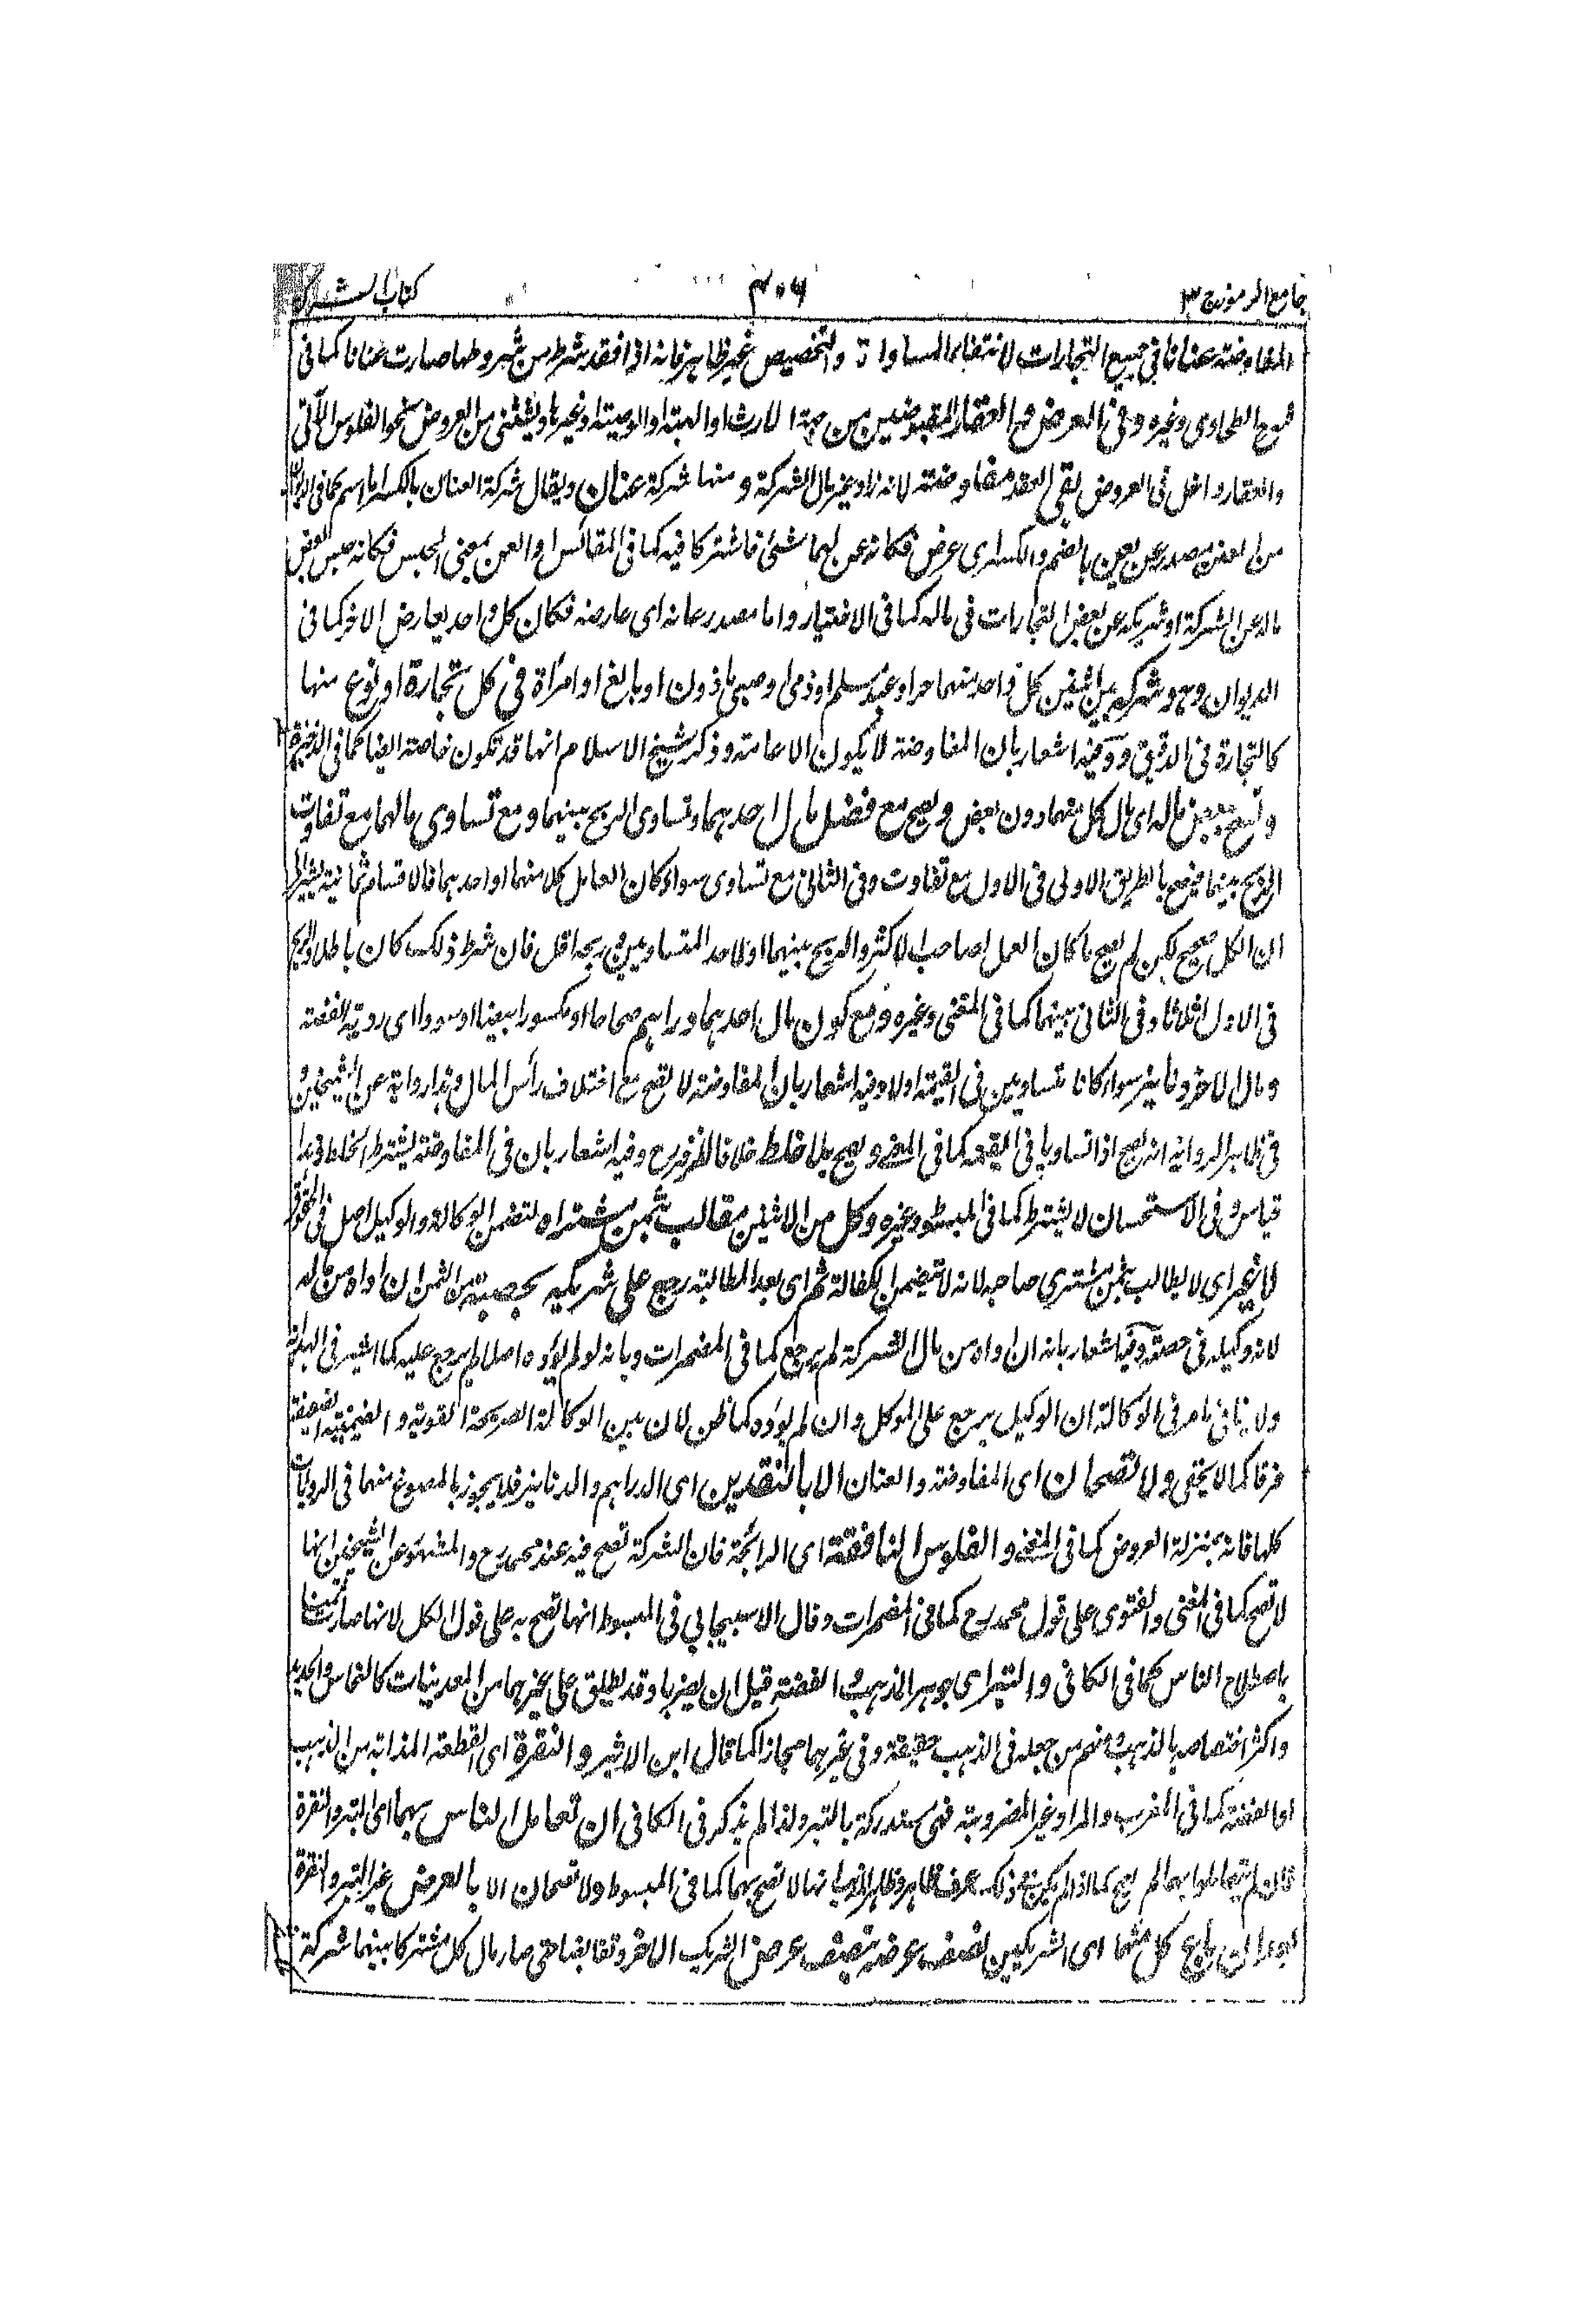 جامع الرموز ج ٣
٤٠٦
كتاب الشركة
المفاوضة عنانا في جميع التجارات لانتفاء المساواة والتخصيص غير ظاهر فانه اذا فقد شرط من شروطها صارت عنانا كما في
الطحاوي وغيره وفي العرض والعقار المقبوضين من جهة الارث او الهبة او الوصية او غيرها ويستثنى من العروض نحو الفلوس الآتي
والعقار داخل في العروض بقي العقد مفاوضة لانه زاد غير مال الشركة و منها شركة عنان ويقال شركة العنان بالكسر اما اسم كما في
من العنن مصدر عن يعن بالضم والكسر اي عرض فكانه عن لهما شئ فاشتركا فيه كما في المقائس او العن بمعنى الحبس فكانه حبس بعض
ماله عن الشركة او شريكه عن بعض التجارات في ماله كما في الاختيار واما مصدر عانه اي عارضه فكان كل واحد يعارض الاخر كما في
الديوان وهو شركة بين اثنين كل واحد منهما حر او عبد مسلم او ذمي او صبي ماذون او بالغ او امرأة في كل تجارة او نوع منها
كالتجارة في الدقيق وفيه اشعار بان المفاوضة لا يكون الا عامة وذكر شيخ الاسلام انها قد تكون خاصة ايضا كما في الذخيرة
و تصح ببعض ماله اي مال كل منهما دون بعض و تصح مع فضل مال احدهما وتساوي الربح بينهما و مع تساوي مالهما مع تفاوت
الربح بينهما فيصح بالطريق الاولى في الاول مع تفاوت وفي الثاني مع تساوي سواء كان العامل كلا منهما او احدهما فالاقسام ثمانية
ان الكل صحيح لكن لم يصح ما كان العمل لصاحب الاكثر والربح بينهما او لاحد المتساويين ربحه اقل فان شرط ذلك كان باطلا والربح
في الاول اثلاثا وفي الثاني بينهما كما في المغني وغيره و مع كون مال احدهما دراهم صحاحا او مكسورا بيضا او سودا اي ردية الفضة
و مال الاخر دنانير سواء كانا متساويين في القيمة اولا وفيه اشعار بان المفاوضة لا تصح مع اختلاف رأس المال وهذا رواية عن الشيخين و
في ظاهر الرواية انه يصح اذا تساويا في القيمة كما في المغني و يصح بلا خلط خلافا لزفر رح وفيه اشعار بان في المفاوضة يشترط الخلط وهذا
قياس وفي الاستحسان لا يشترط كما في المبسوط وغيره و كل من الاثنين مطالب بثمن مشتراه لتضمن الوكالة والوكيل اصل في الحقوق
لا غير اي لا يطالب بثمن مشترى صاحبه لانه لا تتضمن الكفالة ثم اي بعد المطالبة رجع على شريكه بحصته من الثمن ان اداه من ماله
لانه وكيله في حصته وفيه اشعار بانه ان اداه من مال الشركة لم يرجع كما في المضمرات وبانه لو لم يؤده اصلا لم يرجع عليه كما اشير في
ولا ينافي ما مر في الوكالة ان الوكيل يرجع على الموكل وان لم يؤده كما ظن لان بين الوكالة الصريحة القوية و الضمنية الضعيفة
فرقا كما لا يخفى و لا تصحان اي المفاوضة والعنان الا بالنقدين اى الدراهم والدنانير فلا يجوز بالمصوغ منهما في الروايات
كلها فانه بمنزلة العروض كما في المغني و الفلوس النافقة اى الرائجة فان الشركة تصح فيه عند محمد رح والمشهور عن الشيخين انها
لا تصح كما في المغني والفتوى على قول محمد رح كما في المضمرات وقال الاسبيجابي في المبسوط انها تصح به على قول الكل لانها صارت ثمنا
باصطلاح الناس كما في الكافي و التبر اي جوهر الذهب والفضة قبل ان يضربا وقد يطلق على غيرهما من المعدنيات كالنحاس والحديد
واكثر اختصاصه بالذهب ومنهم من جعله في الذهب حقيقة وفي غيرهما مجازا كما قال ابن الاثير و النقرة اي القطعة المذابة من الذهب
او الفضة كما في المغرب والمراد غير المضروبة فهي مستدركة بالتبر ولذا لم يذكر في الكافي ان تعامل الناس بهما اي التبر والنقرة
فان لم يتعاملوا بهما لم يصح كما اذا لم يكن ذلك عرف ظاهر وظاهر المذهب انها لا تصح بهما كما في المبسوط ولا تصحان الا بالعرض غير التبر والنقرة
باع كل منهما اى الشريكين نصف عرضه بنصف عرض الشريك الاخر وتقابضا حتى صار مال كل مشتركا بينهما شركة